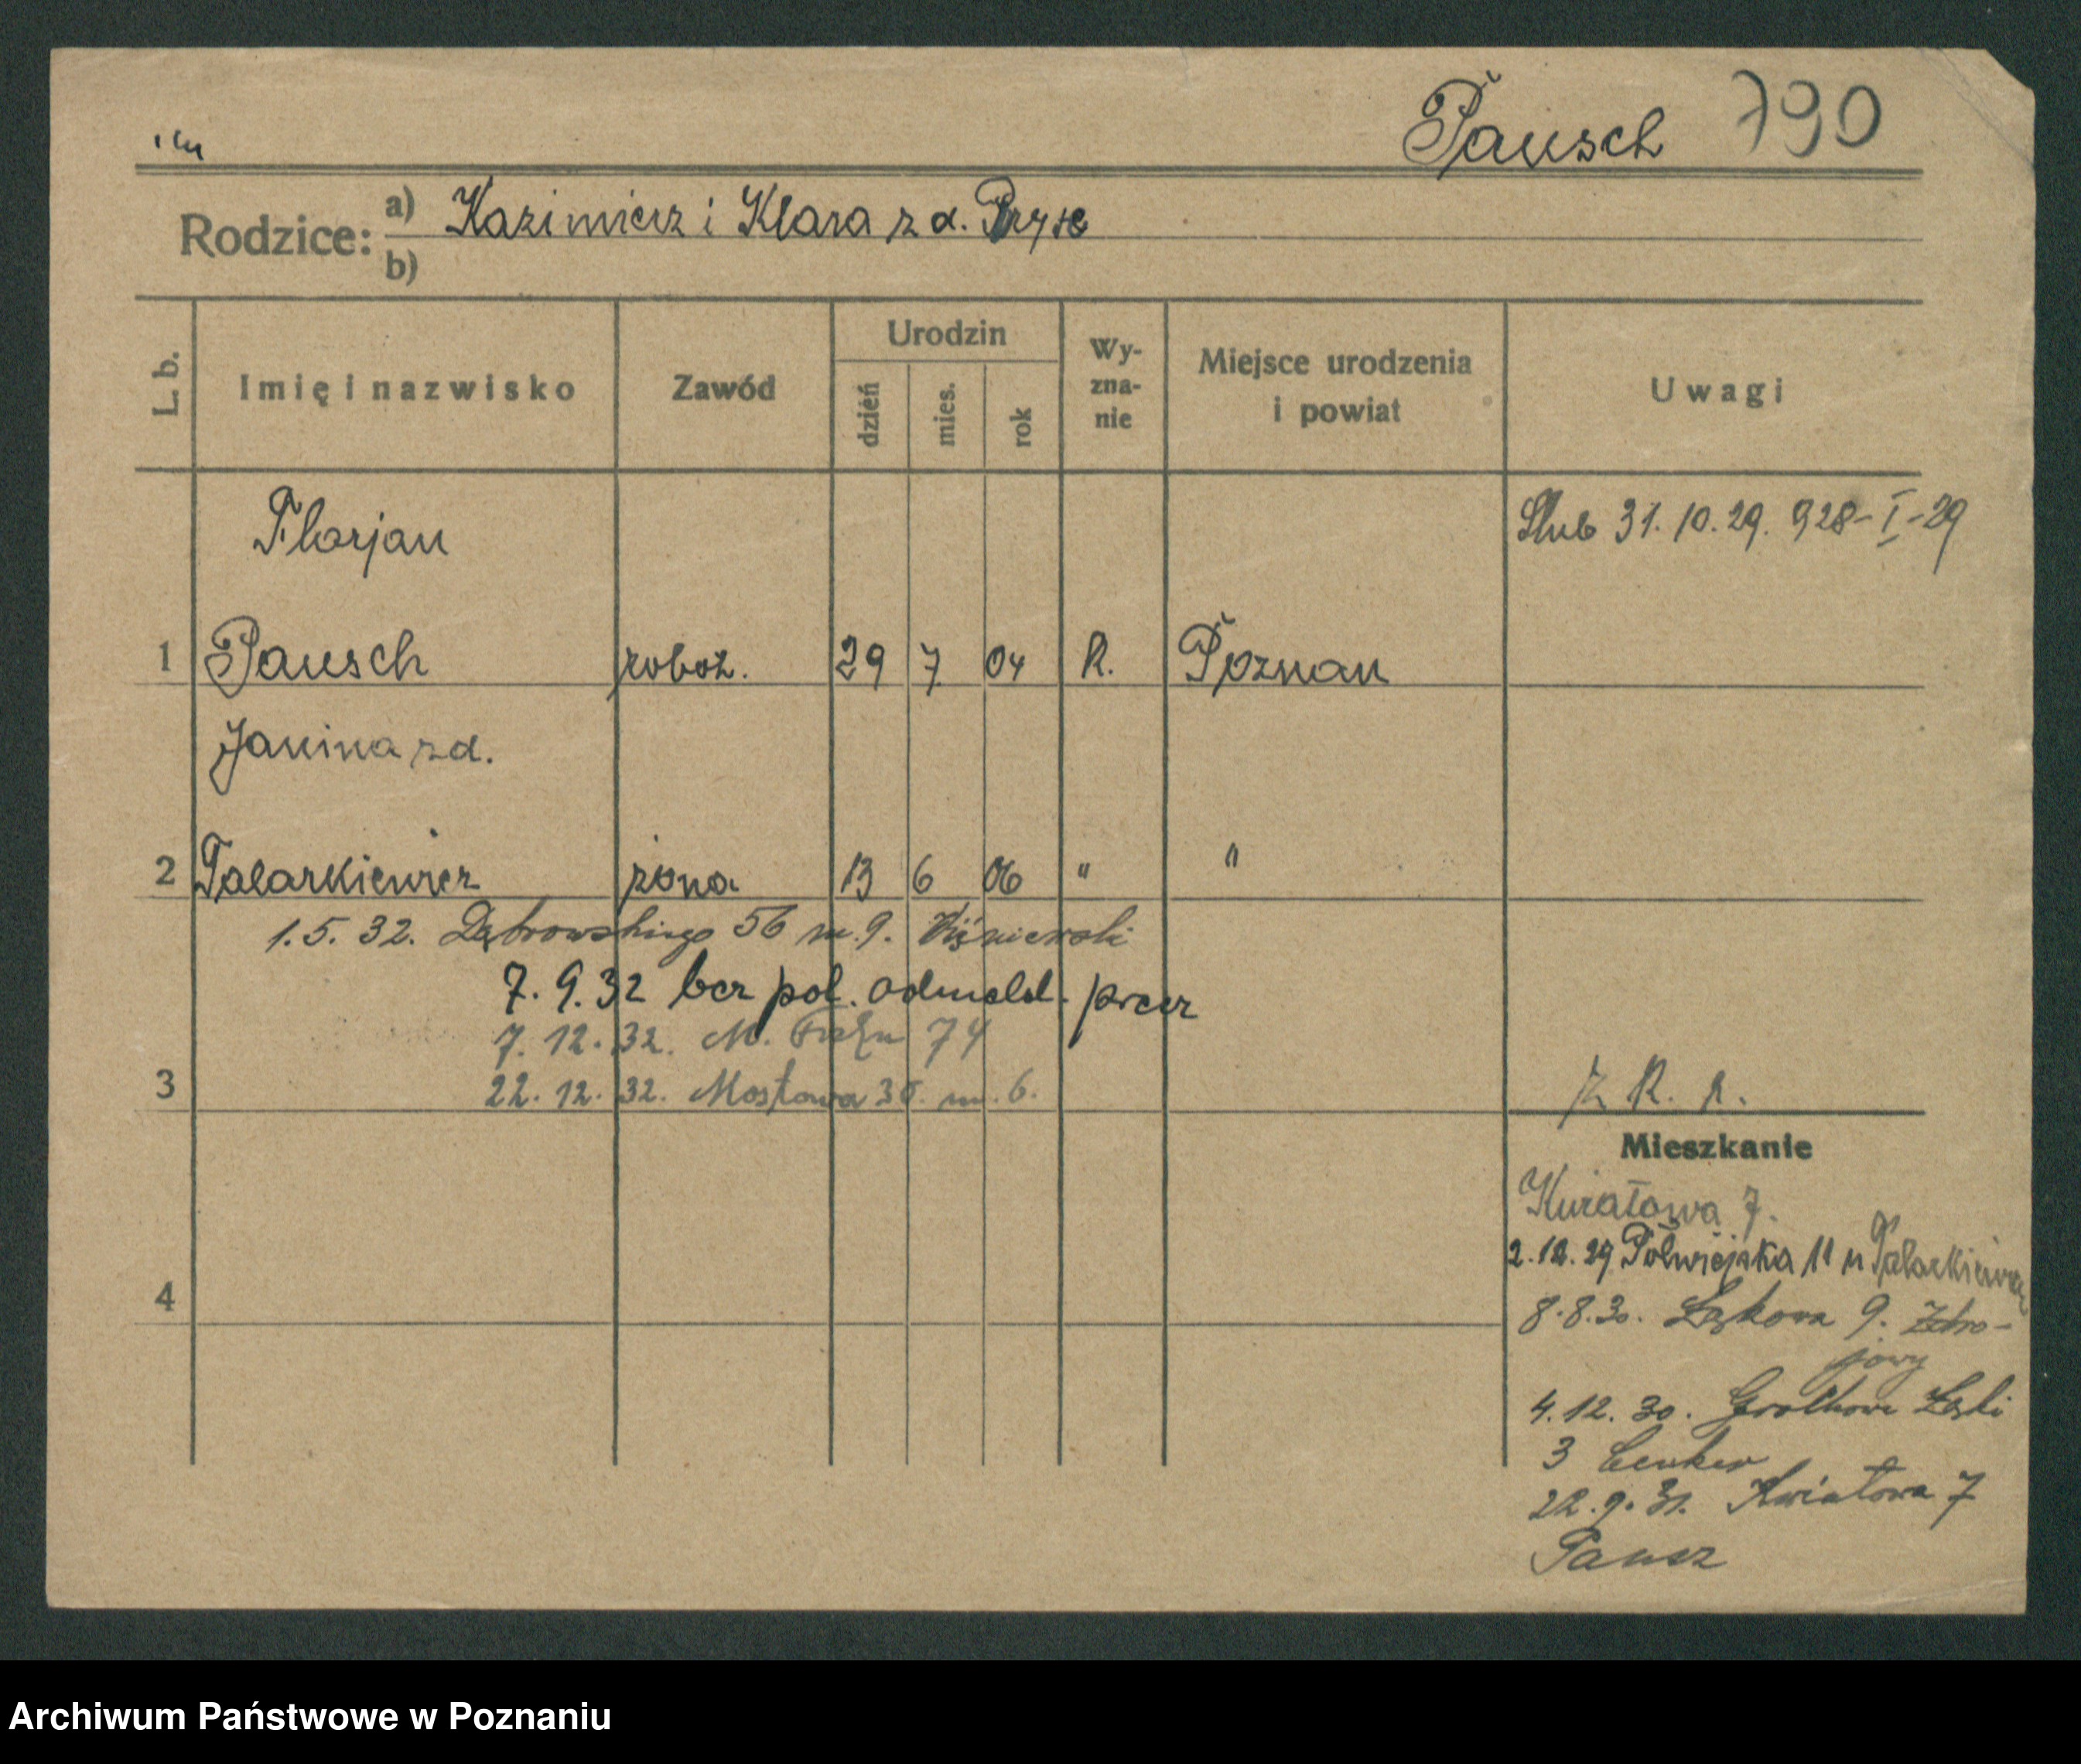 Pausch 790
Rodzice: a) Kazimierz i Klara z d.
b)
L. b.
Imię i nazwisko
Zawód
Urodzin
dzień
mies.
rok
Wy-
zna-
nie
Miejsce urodzenia
i powiat
Uwagi
Florjan
Ślub 31.10.29. 928-I-29
1 Pausch robot. 29 7 04 R. Poznan
Janina z d.
2 Talarkiewicz żona 13 6 06 " "
1.5.32. Dąbrowskiego 56 m.9. Wiśniewski
7.9.32 bez pol. odmeld. przez
7.12.32. M. 74
22.12.32. Mostowa 30. m. 6.
3
Z K. R.
Mieszkanie
Kwiatowa 7.
2.12.29 Półwiejska 11 u Talarkiewicz
8.8.30. Łąkowa 9. Zdro-
jowy
4.12.30. Grochowe Łąki
3
22.9.31. Kwiatowa 7
Pausz
4
Archiwum Państwowe w Poznaniu